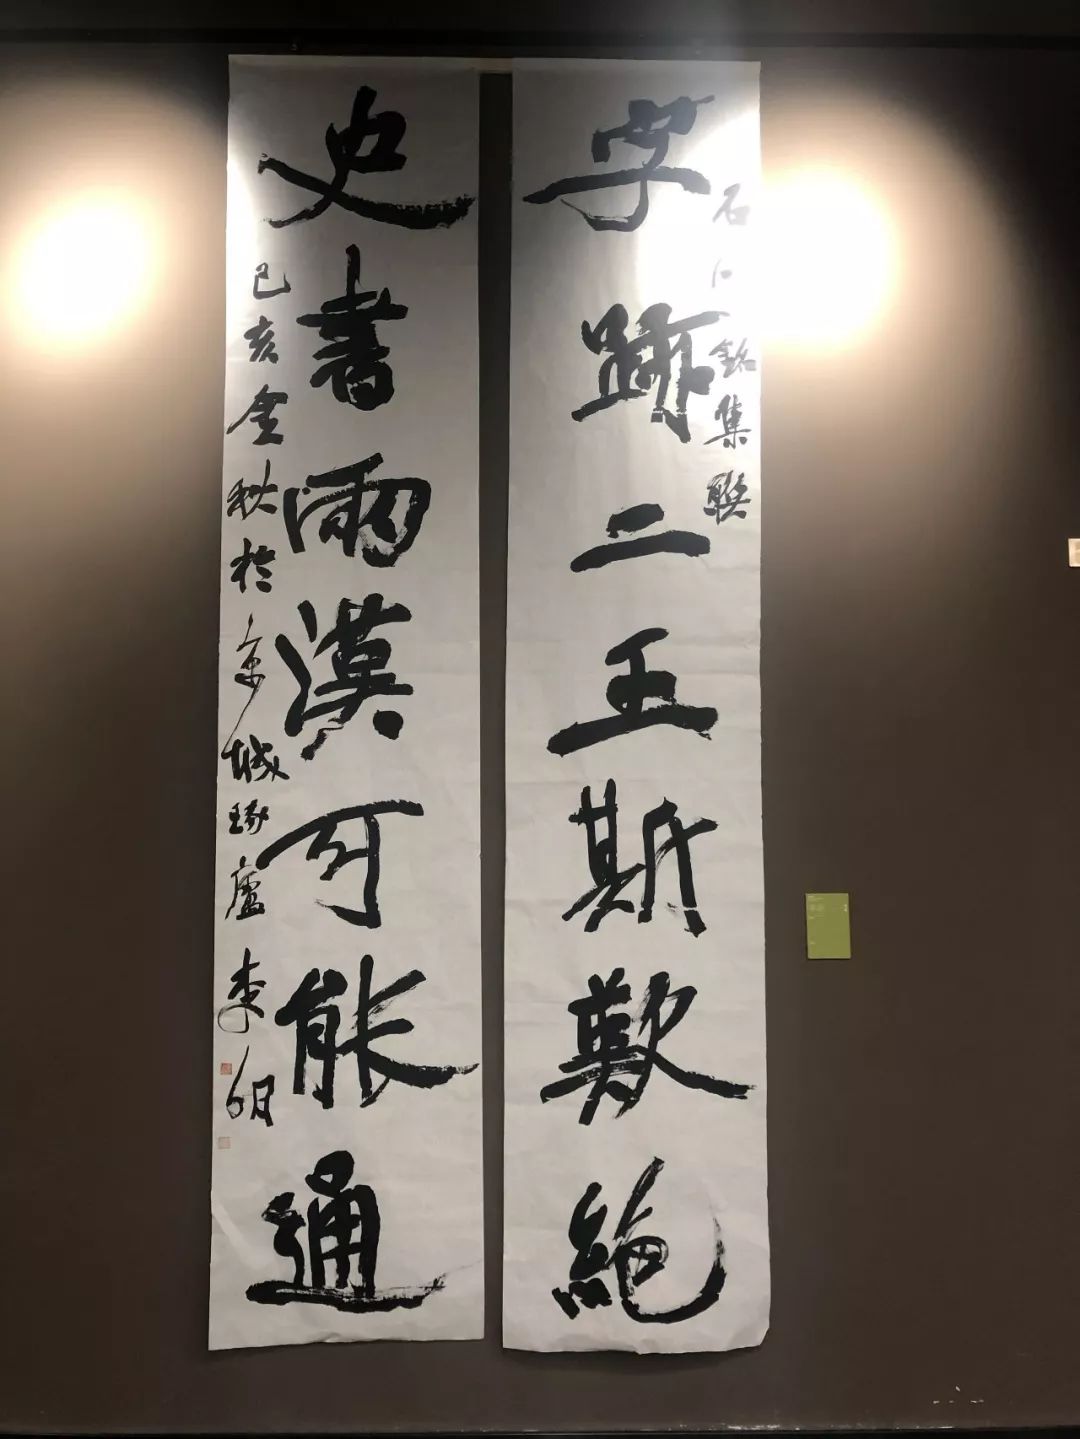 字跡二王斯歎絶
石门銘集聯
史書兩漢可能通
己亥金秋於京城琢廬李明